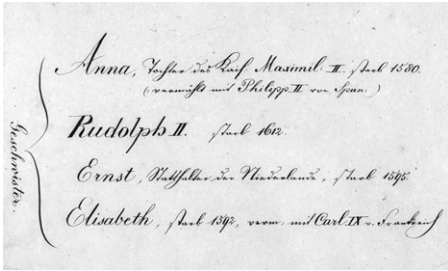 Anna, Tochter des Kais. Maximil. II. starb 1580.
(vermählt mit Philipp II. von Span.)
Geschwister.
Rudolph II. starb 1612.
Ernst, Statthalter der Niederlande, starb 1595.
Elisabeth, starb 1592, verm. mit Carl IX v. Frankreich